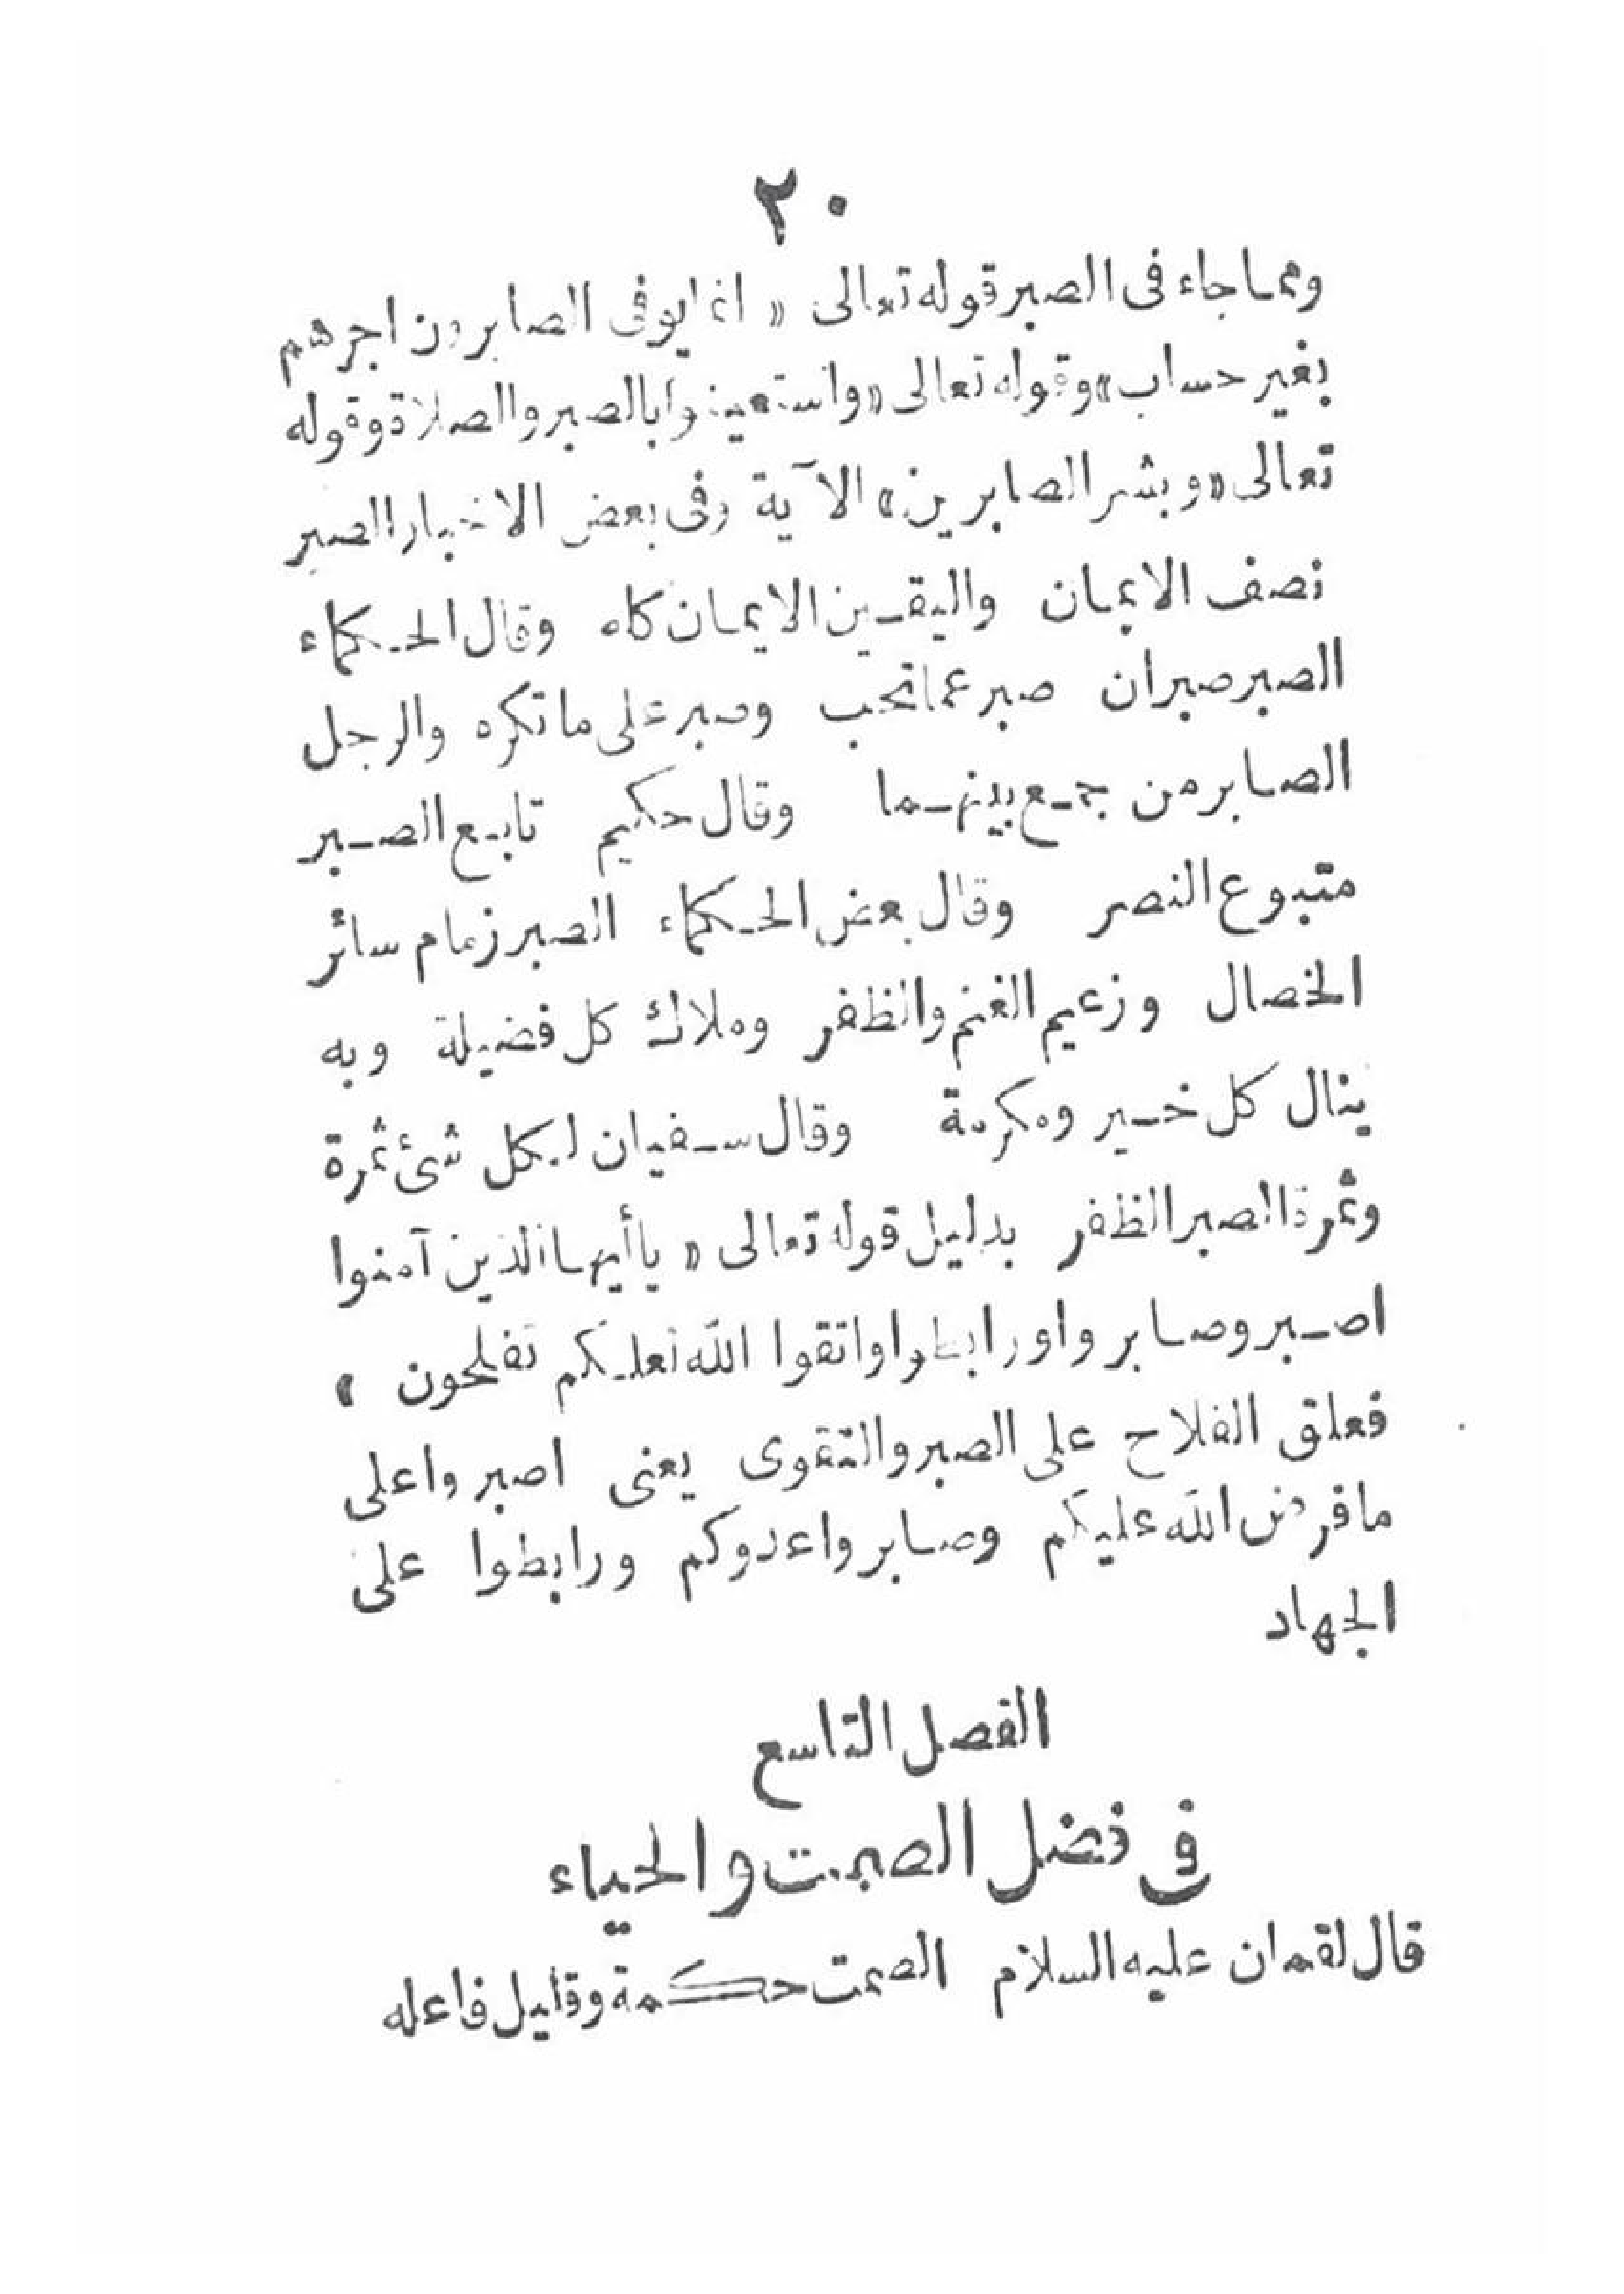 ٢٠
ومما جاء فى الصبر قوله تعالى « انما يوفى الصابرون اجرهم
بغير حساب » وقوله تعالى « واستعينوا بالصبر والصلاة وقوله
تعالى « وبشر الصابرين » الآية وفى بعض الاخبار الصبر
نصف الايمان واليقين الايمان كله وقال الحكماء
الصبر صبران صبر عما تحب وصبر على ما تكره والرجل
الصابر من جمع بينهما وقال حكيم تابع الصبر
متبوع النصر وقال بعض الحكماء الصبر زمام سائر
الخصال وزعيم الغنم والظفر وملاك كل فضيلة وبه
ينال كل خير ومكرمة وقال سفيان لكل شئ ثمرة
وثمرة الصبر الظفر بدليل قوله تعالى « يا أيها الذين آمنوا
اصبر وصابروا ورابطوا واتقوا الله لعلكم تفلحون »
فعلق الفلاح على الصبر والتقوى يعنى اصبروا على
ما فرض الله عليكم وصابروا عدوكم ورابطوا على
الجهاد
الفصل التاسع
فى فضل الصمت والحياء
قال لقمان عليه السلام الصمت حكمة وقليل فاعله